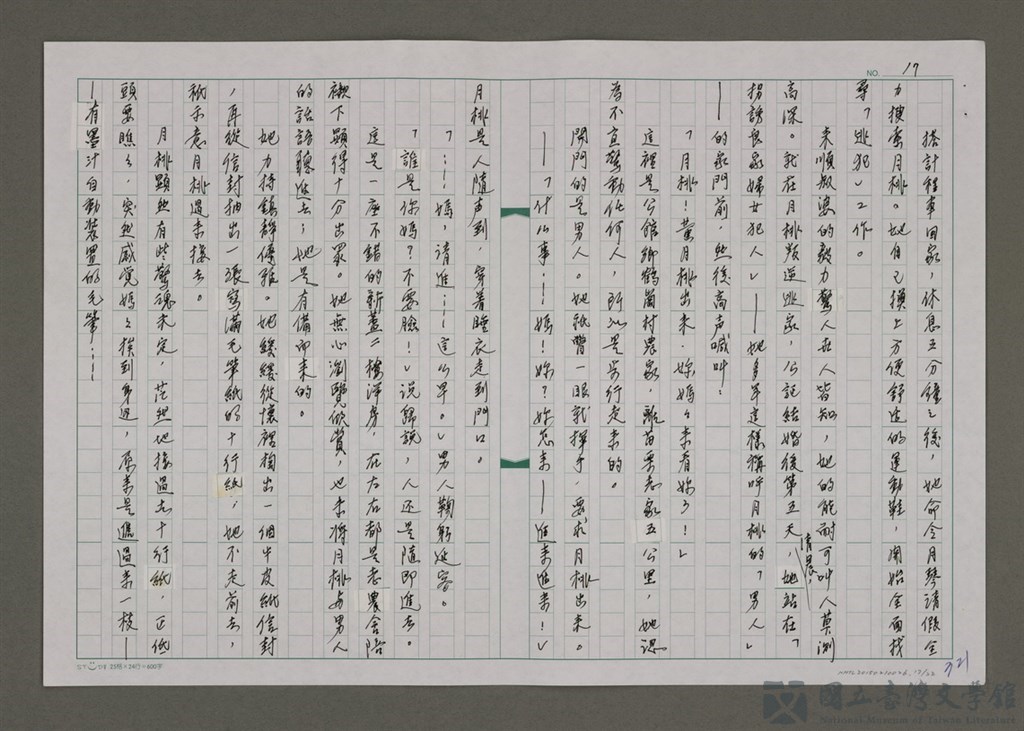 NO. 17
搭計程車回家,休息五分鐘之後,她命令月琴請假全
力搜索月桃。她自己換上方便舒适的運動鞋,開始全面找
尋「逃犯」工作。
來順叔婆的毅力驚人世人皆知,她的能耐可叫人莫測
高深。就在月桃叛逆逃家,公記結婚後第五天清晨,她站在「
拐誘良家婦女犯人」——她多年這樣稱呼月桃的「男人」
——的家門前,然後高声喊叫:
「月桃!葉月桃出來,妳媽々來看妳了!」
這裡是公館鄉鶴岡村農家,離苗栗老家五公里,她認
為不宜驚動任何人,所以是步行走來的。
開門的是男人。她祇瞥一眼就揮手,要求月桃出來。
——「什么事……媽!妳?妳怎來——進來進來!」
月桃是人隨声到,穿著睡衣走到門口。
「……媽,請進……這么早。」男人鞠躬延客。
「誰是你媽?不要臉!」説歸說,人还是隨即進去。
這是一座不錯的新蓋二樓洋房,在左右都是老農舍陪
襯下顯得十分出眾。她無心瀏覽欣賞,也未將月桃与男人
的話語聽進去;她是有備而來的。
她力持鎮靜優雅。她緩緩從懷裡掏出一個牛皮紙信封
,再從信封抽出一張寫滿毛筆紙的十行紙,她不走前去,
祇示意月桃過來接去。
月桃顯然有些驚魂未定,茫然地接過去十行紙,正低
頭要瞧々,突然感覺媽々挨到身邊,原來是遞過來一枝—
—有墨汁自動裝置的毛筆……
25格×24行=600字
國立臺灣文學館
National Museum of Taiwan Literature